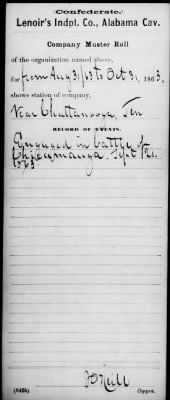 Confederate.
Lenoir's Indpt. Co., Alabama Cav.
Company Muster Roll
of the organization named above,
for from Aug 31/63 to Oct 31, 1863.
shows station of company,
Near Chattanooga, Ten
RECORD OF EVENTS.
Engaged in battle of
Chicamauga, Sept
1863
(642b)
Copyist.